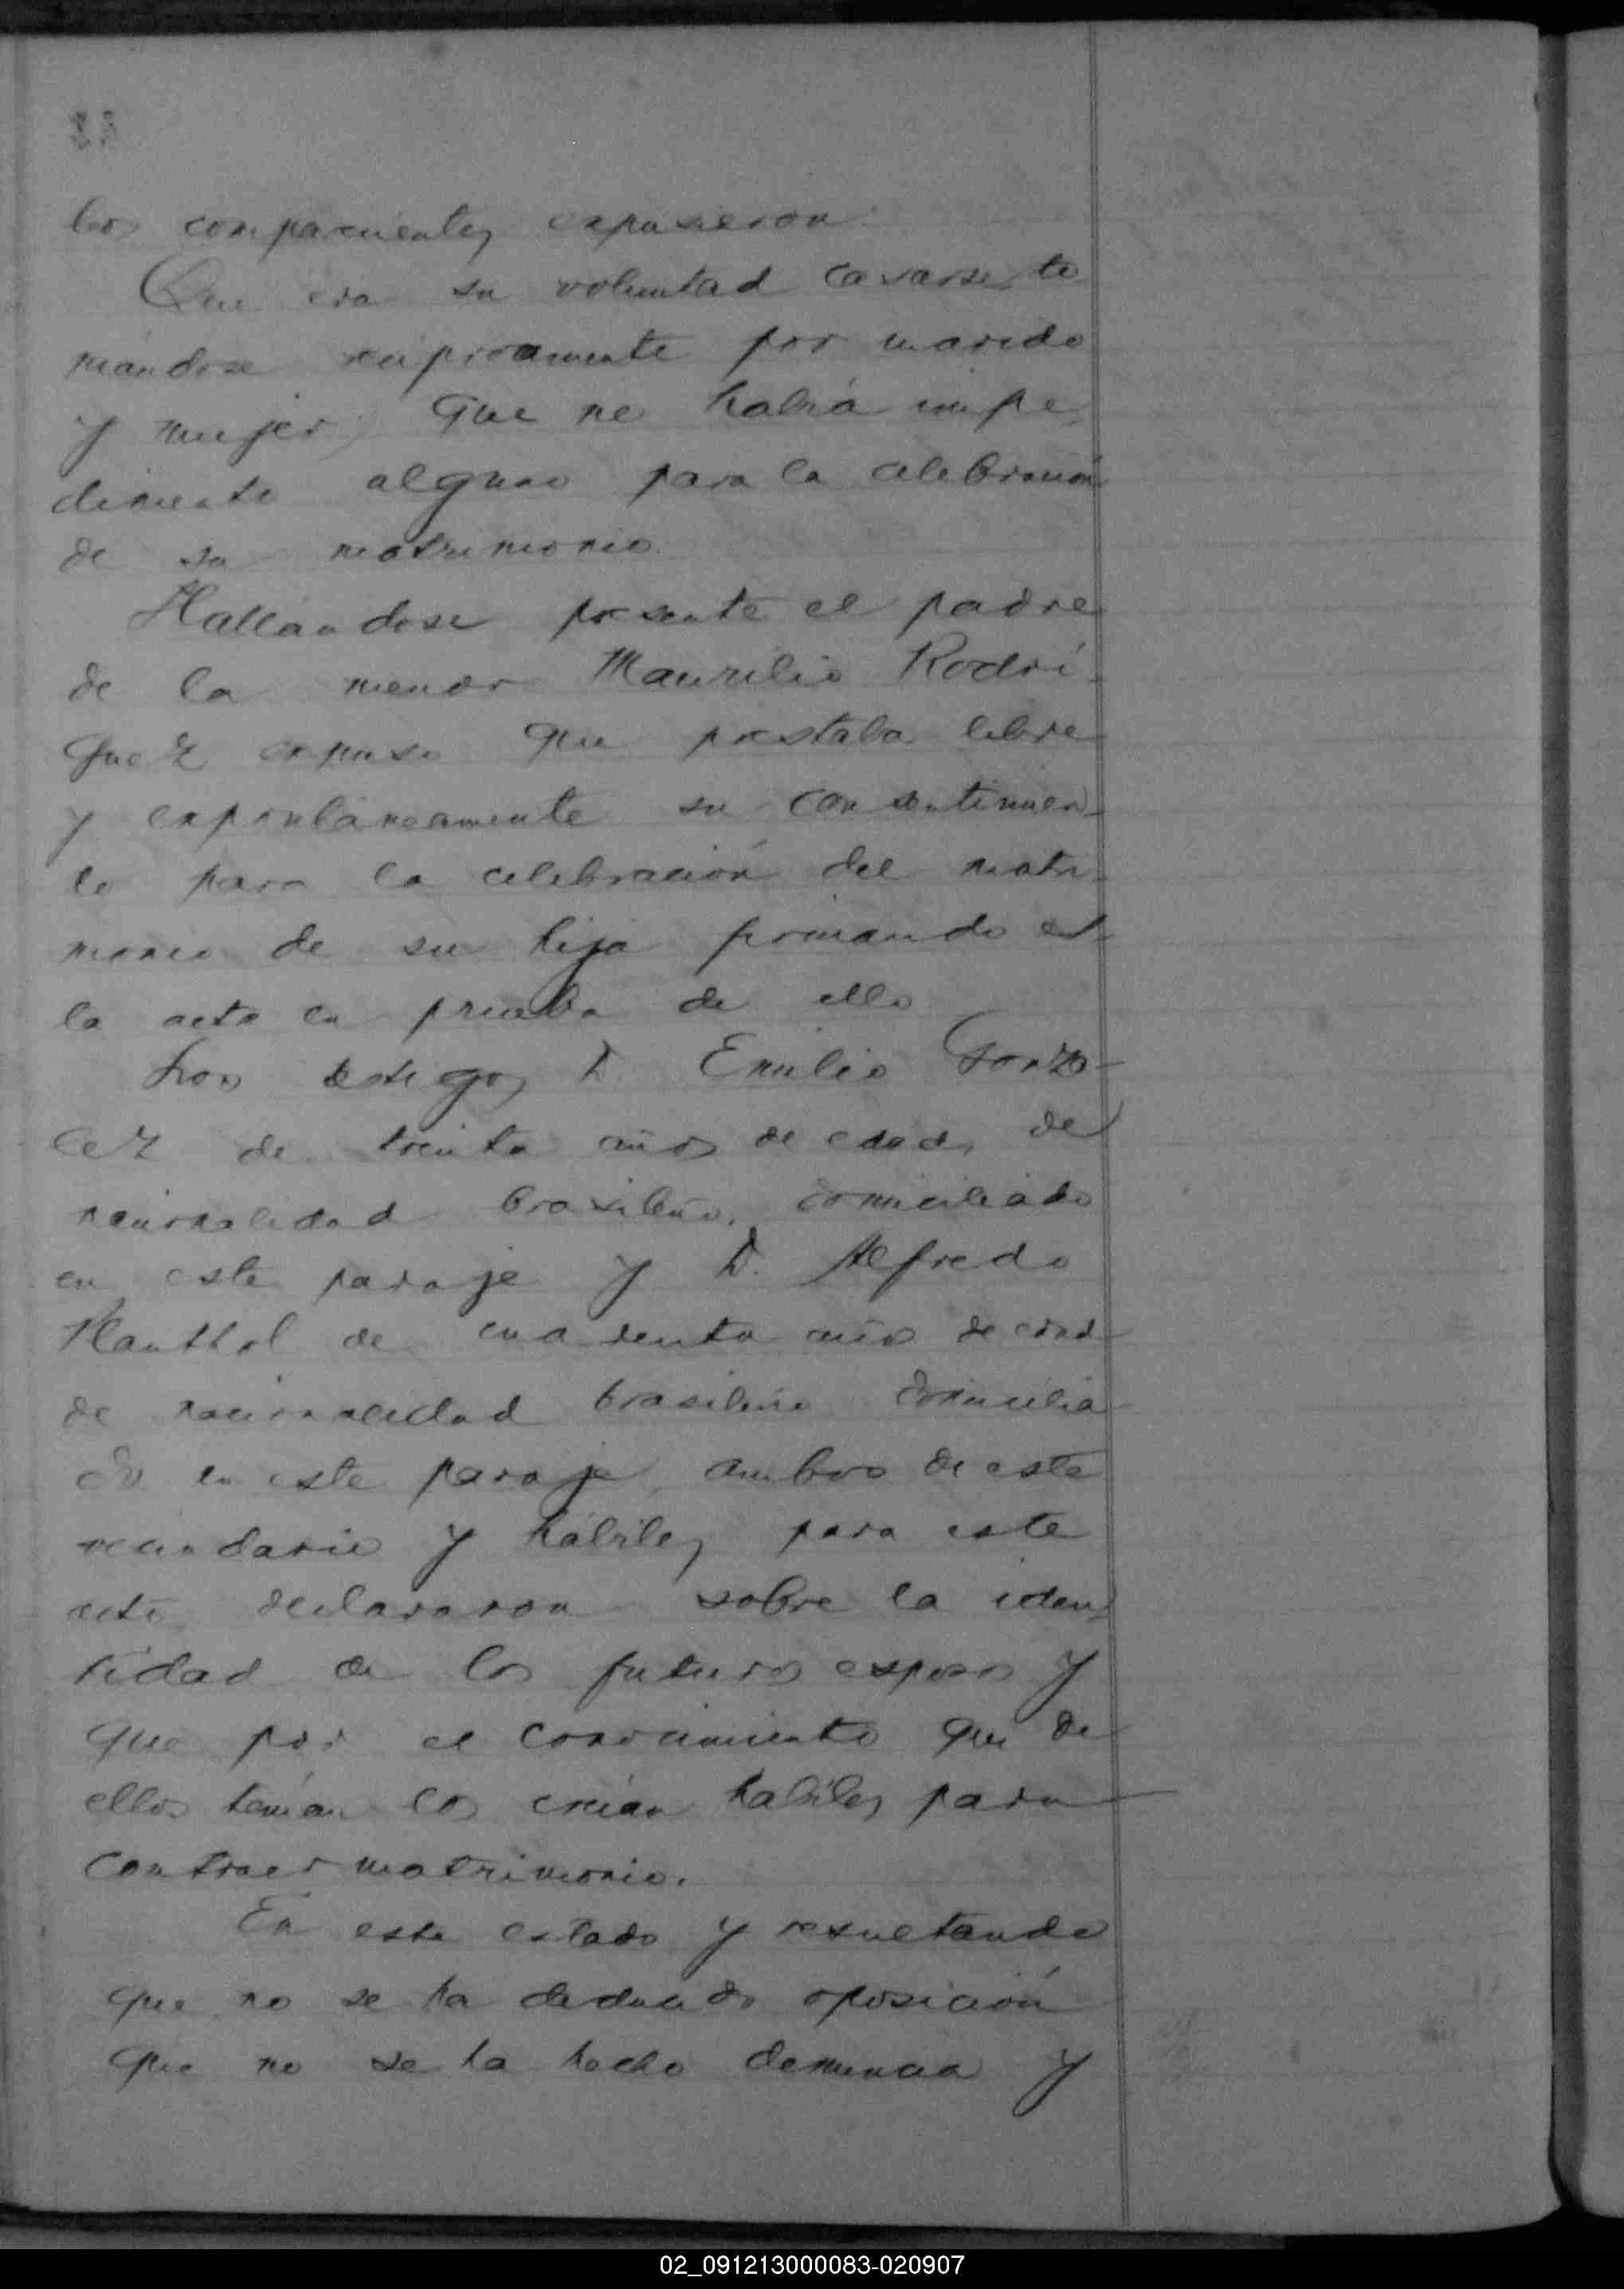 los comparecientes expusieron:
Que era su voluntad casarse, to
mándose reciprocamente por marido
y mujer; Que no había impe
dimento alguno para la celebración
de su matrimonio.
Hallandose presente el padre
de la menor Maurilio Rodrí-
guez expuso que prestaba libre
y expontáneamente su consentimien-
to para la celebración del matri-
monio de su hija firmando es-
ta acta en prueba de ello.
Los testigos D. Emilio Gonza-
lez de treinta años de edad, de
nacionalidad brasileño, domiciliado
en este paraje y D. Alfredo
de cuarenta años de edad
de nacionalidad brasileño domicilia
do en este paraje, ambos de este
vecindario y hábiles para este
acto declararon sobre la iden
tidad de los futuros esposos y
que por el conocimiento que de
ellos tenían los creían habiles para
contraer matrimonio.
En este estado y resultando
que no se ha deducido oposición
que no se ha hecho denuncia y
02_091213000083-020907